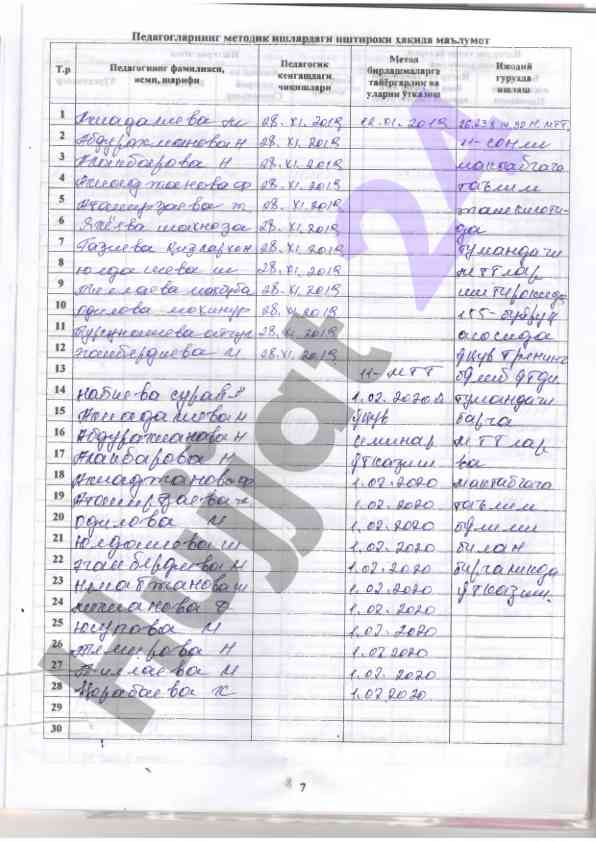 Педагогларнинг методик ишлардаги иштироки ҳақида маълумот
Т.р Педагогнинг фамилияси, исми, шарифи Педагогик кенгашдаги чиқишлари Метод бирлашмаларга тайёргарлик ва уларни ўтказиш Ижодий гуруҳда ишлаш
1 Ахмадалиева М 28.XI.2019 12.XI.2019
2 Абдурахманова Н 28.XI.2019 11-сонли
3 Аланбарова Н 28.XI.2019 мактабгача
4 Ахмаджанова Ф 28.XI.2019 таълим
5 28.XI.2019 ташкилоти-
6 Яхёева шахноза 28.XI.2019 да
7 Газиева Қизлархон 28.XI.2019 тумандаги
8 юлдашева ш 28.XI.2019 мттлар
9 28.XI.2019 иштирокида
10 одилова мохинур 28.XI.2019 115-буйруқ
11 28.XI.2019 асосида
12 эгамбердиева М 28.XI.2019 ўқув тренинг
13 11-МТТ бўлиб ўтди
14 набиева сурайё 1.02.2020 тумандаги
15 Ахмадалиева М ўқув барча
16 Абдурахманова Н семинар мттлар
17 Аланбарова Н ўтказиш ва
18 Ахмаджанова Ф 1.02.2020 мактабгача
19 1.02.2020 таълим
20 одилова М 1.02.2020 бўлими
21 Юлдашева ш 1.02.2020 билан
22 эгамбердиева М 1.02.2020 биргаликда
23 1.02.2020 ўтказиш.
24 1.02.2020
25 юсупова М 1.02.2020
26 Темирова Н 1.02.2020
27 1.02.2020
28 1.02.2020
29
30
7
Hujjat 24